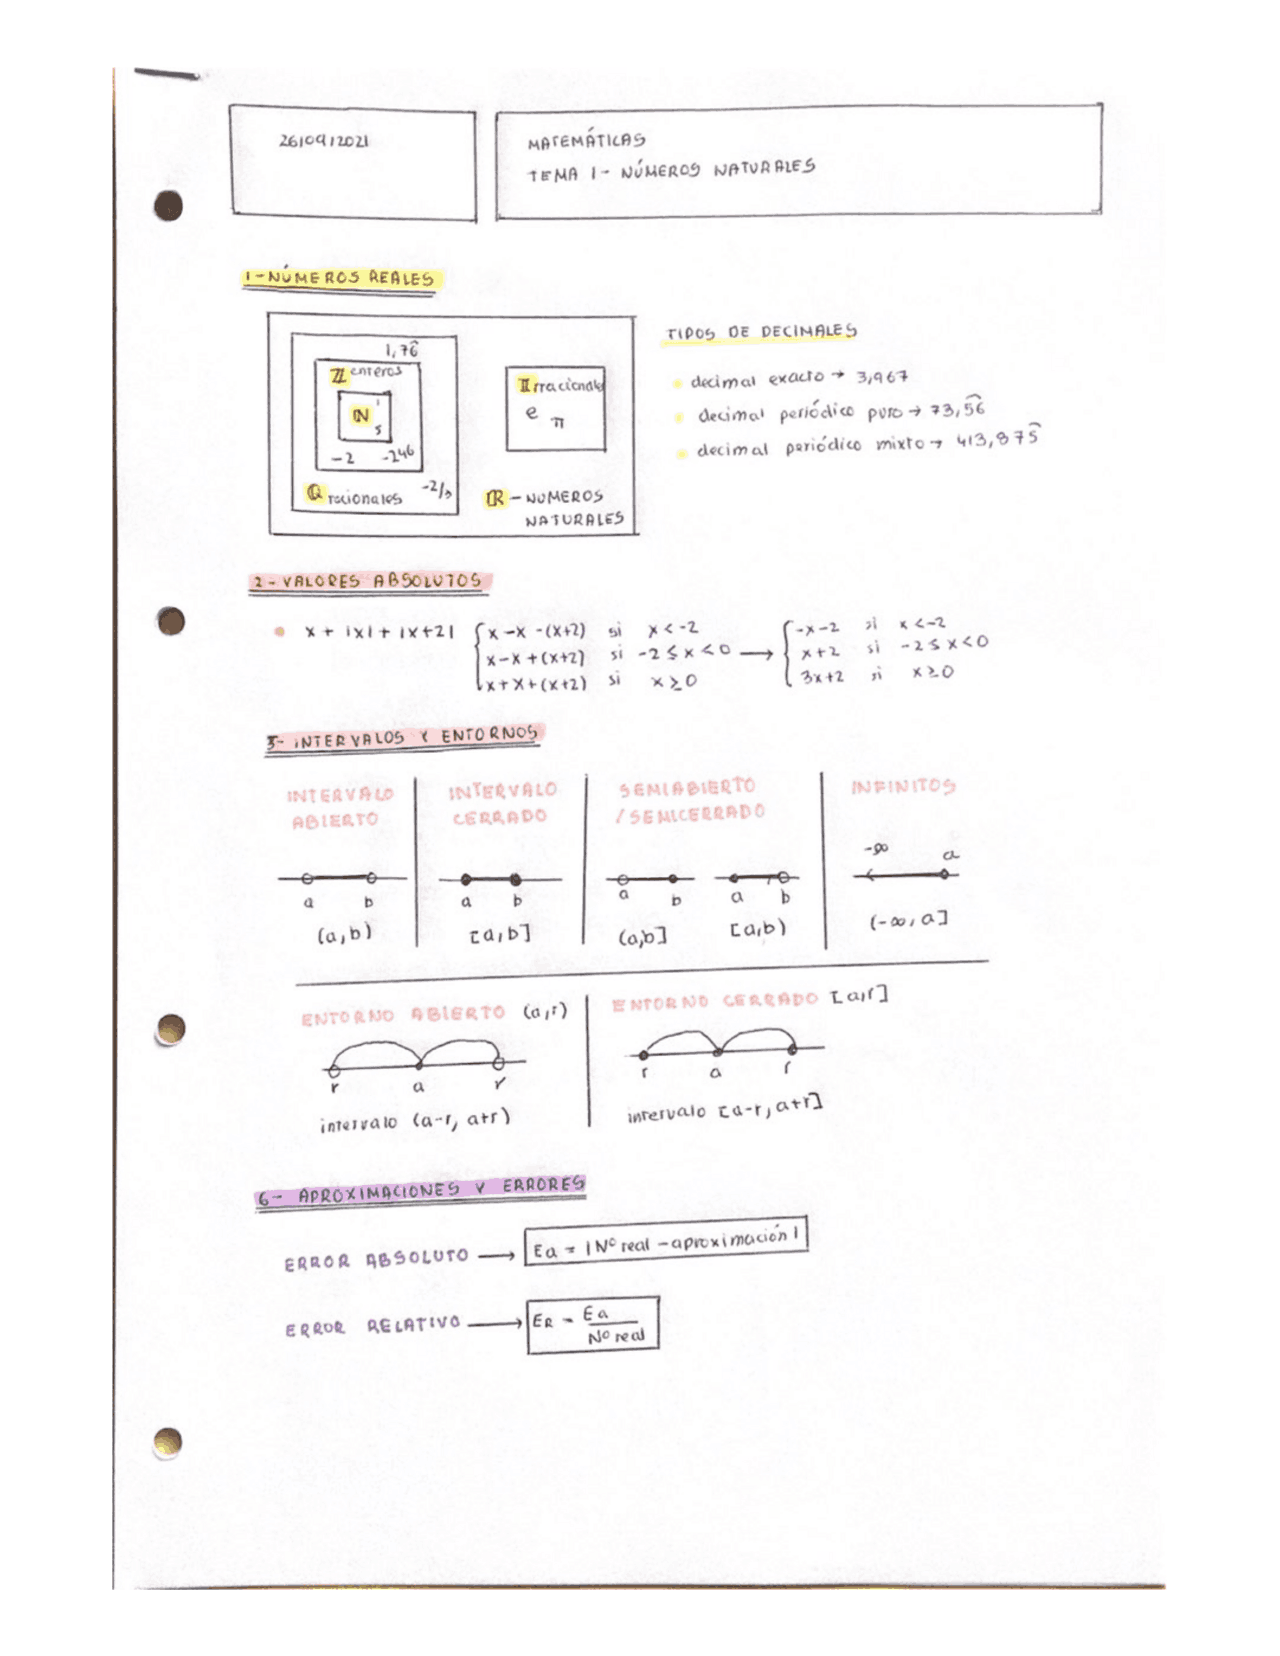 26/09/2021
MATEMÁTICAS
TEMA 1- NÚMEROS NATURALES
1-NÚMEROS REALES
1,76̂
ℤ enteros
ℕ 1
5
-2 -246
ℚ racionales -2/3
𝕀rracionales
e π
ℝ - NUMEROS
NATURALES
TIPOS DE DECIMALES
• decimal exacto → 3,967
• decimal periódico puro → 73,5͡6
• decimal periódico mixto → 413,875̂
2-VALORES ABSOLUTOS
• x + |x| + |x+2| { x-x-(x+2) si x<-2 → { -x-2 si x<-2
x-x+(x+2) si -2≤x<0 x+2 si -2≤x<0
x+x+(x+2) si x≥0 3x+2 si x≥0
3- INTERVALOS Y ENTORNOS
INTERVALO
ABIERTO
a b
(a,b)
INTERVALO
CERRADO
a b
[a,b]
SEMIABIERTO
/SEMICERRADO
a b a b
(a,b] [a,b)
INFINITOS
-∞ a
(-∞,a]
ENTORNO ABIERTO (a,r)
r a r
intervalo (a-r, a+r)
ENTORNO CERRADO [a,r]
r a r
intervalo [a-r, a+r]
6- APROXIMACIONES Y ERRORES
ERROR ABSOLUTO → Ea = |Nº real - aproximación|
ERROR RELATIVO → ER = Ea
Nº real